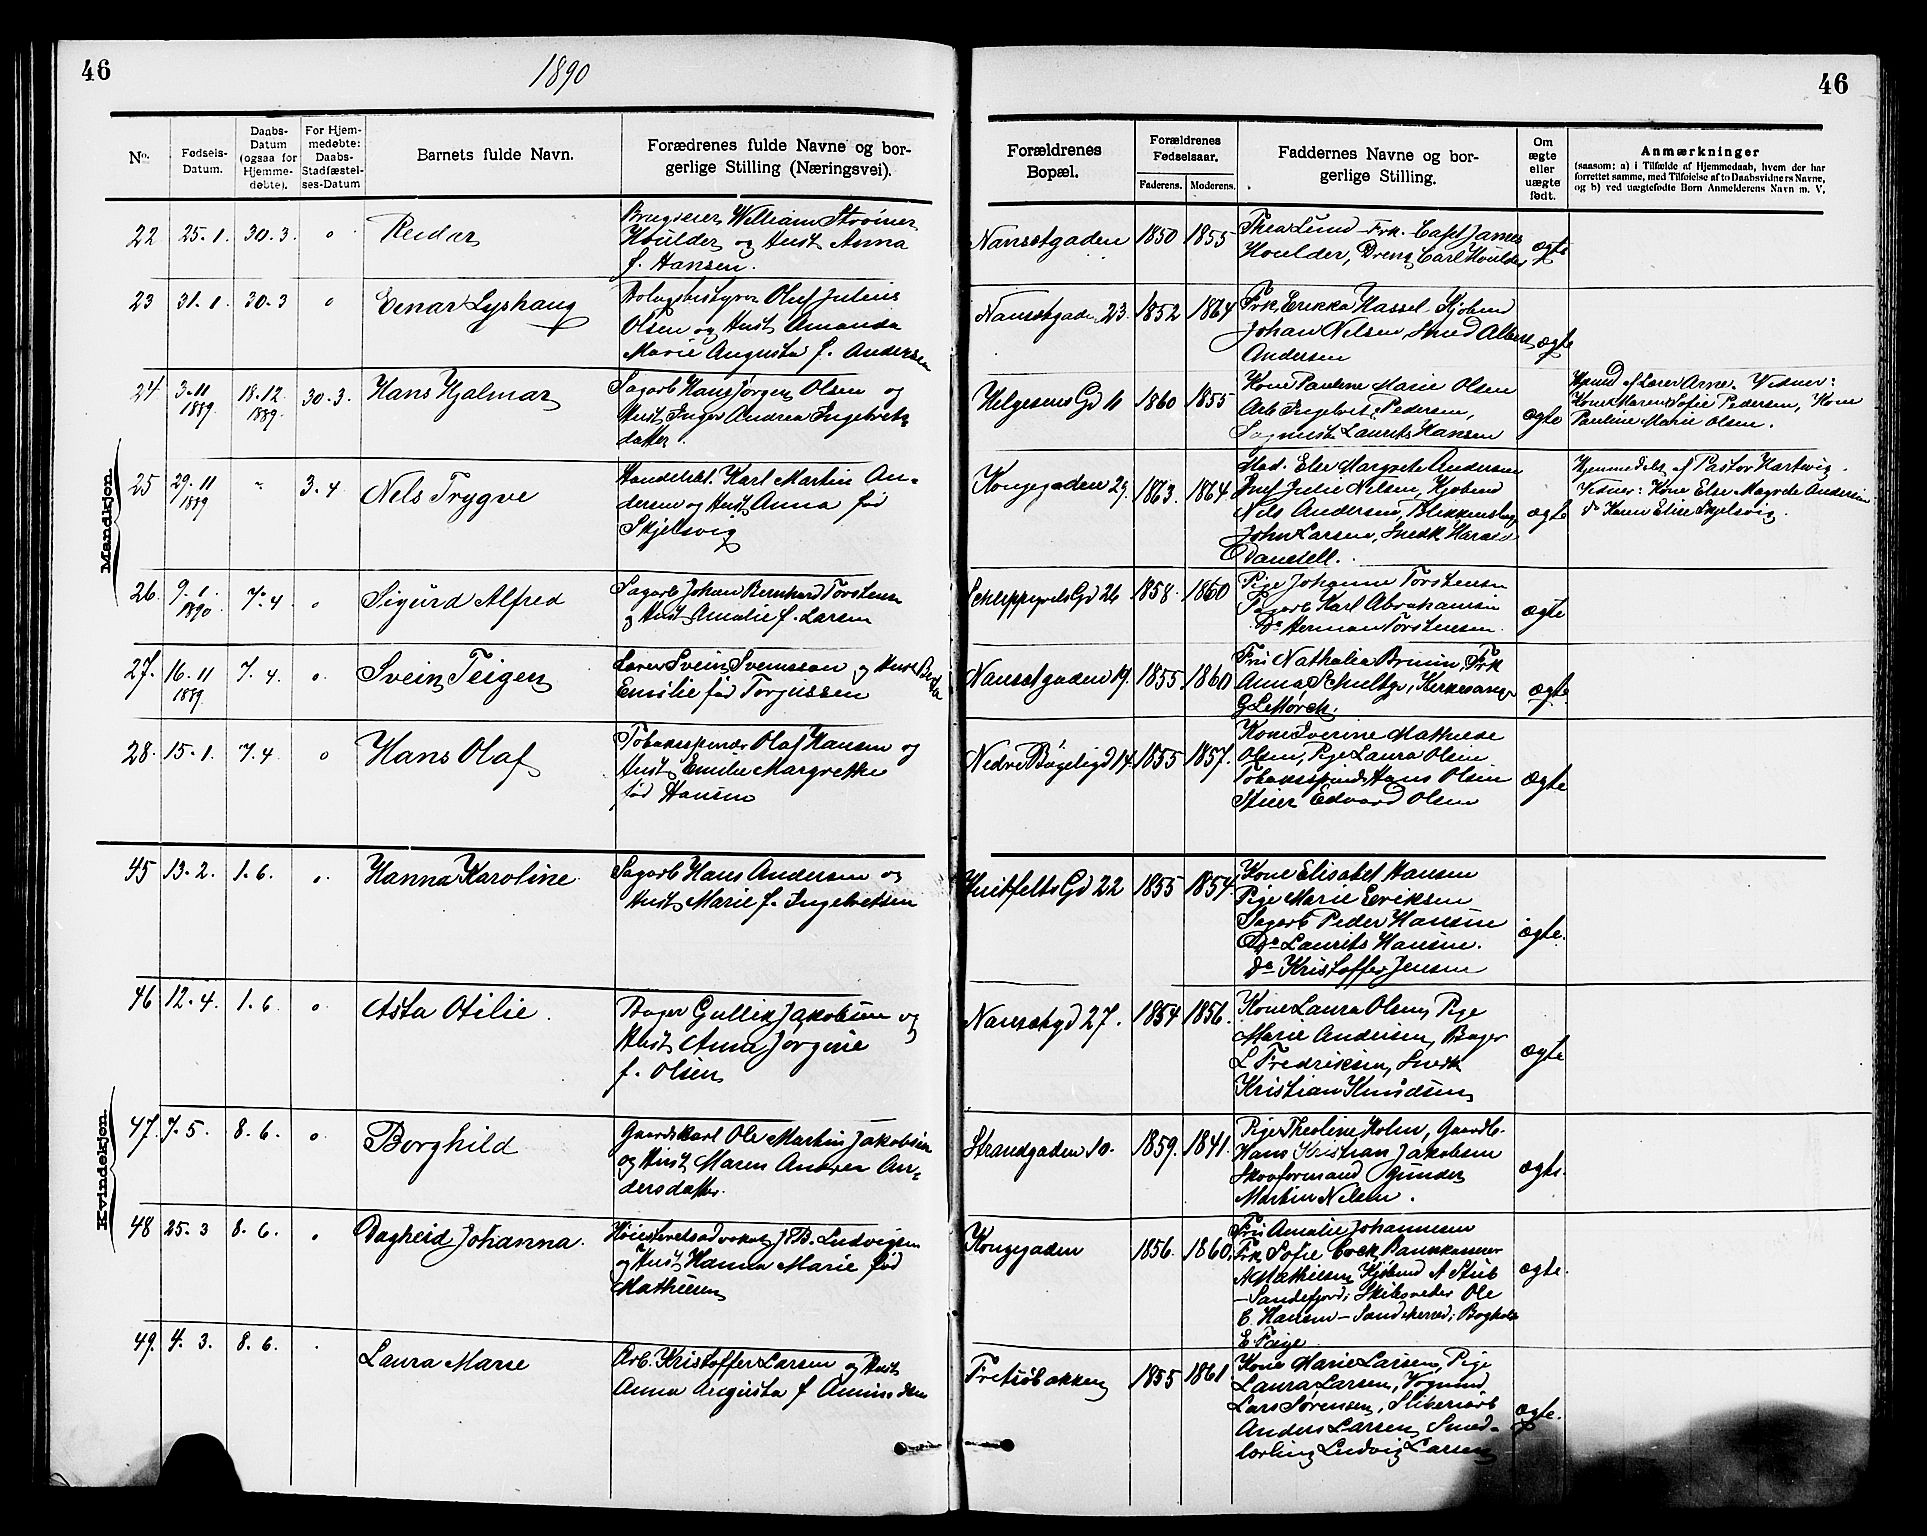 46
1890
No.
Fødsels-
Datum.
Daabs-
Datum
(ogsaa for
Hjemme-
døbte).
For Hjem-
medøbte:
Daabs-
Stadfæstel-
ses-Datum
Barnets fulde Navn.
Forædrenes fulde Navne og bor-
gerlige Stilling (Næringsvei).
Mandkjøn
22 25-1. 30.3. " Reidar
William
Houlder og Hust. Anna
f. Hansen.
23 31-1. 30-3 " Einar Lyshaug
Oluf Julius
Olsen og Hust. Amanda
Marie Augusta f. Andersen
24 3-11 1889 18.12. 1889. 30-3. Hans Hjalmar
Sagarb Hans Jørgen Olsen og
Hust. Inger Andrea Ingebrets-
datter
25 29-11 1889 " 3-4 Nils Trygve
Karl Martin An-
dersen og Hust. Anna fød
Skjelsvig
26. 9-1. 1890. 7-4 " Sigurd Alfred
Sagarb Johan Bernhard Torstensen
og Hust. Amalie f. Larsen
27. 16-11 1889. 7.4. " Svein Teigen
Lærer Svein Svensson og Hust.
Emilie fød Torjussen
28. 15-1. 7.4 " Hans Olaf
Tobaksspinder Olaf Hansen og
Hust. Emilie Margrethe
fød Hansen
Kvindekjøn
45 13-2. 1.6. " Hanna Karoline
Sagarb Hans Andersen og
Hust. Marie f. Ingebretsen
46 12-4. 1.6. " Asta Otilie.
Bager Gullik Jakobsen og
Hust. Anna Jørgine
f. Olsen
47. 7-5. 8.6. " Borghild
Gaardskarl Ole Martin Jakobsen
og Hust. Maren Andrea An-
dersdatter.
48 25-3 8-6. " Dagheid Johanna.
Høiesteretsadvokat J. B. Ludvigsen
og Hust. Hanna Marie fød
Mathiesen
49. 4.3. 8.6. " Laura Marie
Arb. Kristoffer Larsen og Hust.
Anna Augusta f.
46
Forældrenes
Bopæl.
Forældrenes
Fødselsaar.
Faderens. Moderens.
Faddernes Navne og bor-
gerlige Stilling.
Om
ægte
eller
uægte
født.
Anmærkninger
(saasom: a) i Tilfælde af Hjemmedaab, hvem der har
forrettet samme, med Tilføielse af to Daabsvidners Navne,
og b) ved uægtefødte Børn Anmelderens Navn m. V.
Nansetgaden 1850 1855
Thea Lund - Frk. Capt James
Houlder, Dreng Carl Houlder
ægte
Nansetgaden 23. 1852 1864
Frk Erikka Hassel, Kjøbmd
Johan Nilsen, Smed Albert
Andersen
ægte
Helgesens Gd 11 1860 1855
Kone Pauline Marie Olsen
Arb Ingebret Pedersen,
Laurits Hansen
ægte
Hjmd af Lærer Arne. Vidner:
Kone Maren Sofie Pedersen, Kone
Pauline Marie Olsen.
Kongegaden 29. 1863. 1864
Mad. Else Margrete Andersen
Julie Nilsen, Kjøbmd
Nils Andersen, Blikkenslag
John Larsen, Snedk Harald
Danidell.
ægte
Hjemmedøbt af Pastor Hartvig.
Vidner: Kone Else Magrete Andersen
Do Karen Elise Skjelsvig.
Schleppegrels Gd 26 1858. 1860
Pige Johanne Torstensen
Sagarb Karl Abrahamsen
Do Herman Torstensen.
ægte
Nansetgaden 19. 1855 1860
Fru Nathalia Bruun, Frk
Anna Schultze, Kirkesanger
G Lettørch.
ægte
Nedre Bøgeligd 14. 1855 1857.
Kone Iverine Mathilde
Olsen, Pige Laura Olsen
Tobaksspind Hans Olsen
Edvard Olsen
ægte
Huitfelts Gd 22 1855 1854.
Kone Elisabet Hansen
Pige Marie Eriksen
Sagarb Peder Hansen
Do Laurits Hansen.
Do Kristoffer Jensen
ægte.
Nansetgd 27. 1854 1856.
Kone Laura Olsen, Pige
Marie Andersen, Bager
L Fredriksen, Snedk
Kristian Knudsen
ægte
Strandgaden 10. 1859. 1841.
Pige Theoline Holm, Gaardb.
Hans Kristian Jakobsen
Skovformand Gunder
Martin Nilsen.
ægte.
Kongegaden 1856. 1860.
Fru Amalie Johannesen
Frk Sofie Cock, Bankkasserer
A Mathiesen, Kjøbmd A Stub
- Sandefjord; Skibsreder Ole
C. Hansen - Sandeherred; Bogholder
E Faye
ægte.
1855 1861
Kone Marie Larsen, Pige
Laura Larsen, Vognmd
Lars Sørensen, Sliberiarb
Anders Larsen, Smed-
lærling Ludvig Larsen
ægte.